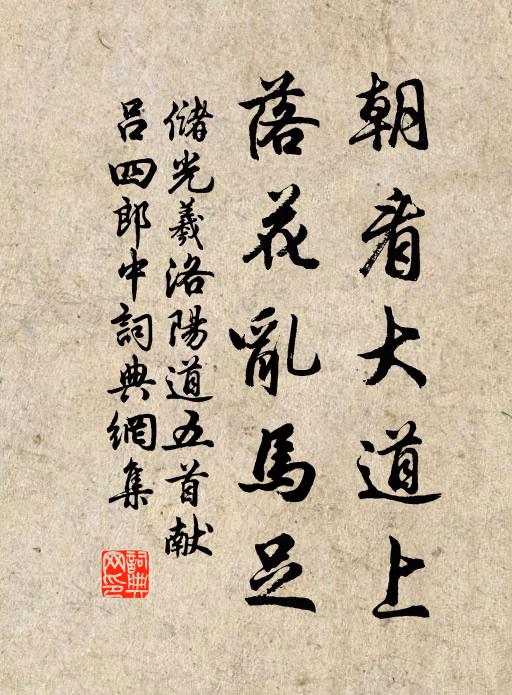 朝看大道上
落花亂馬足
儲光羲洛陽道五首献
呂四郎中詞典網集
詞典
网印